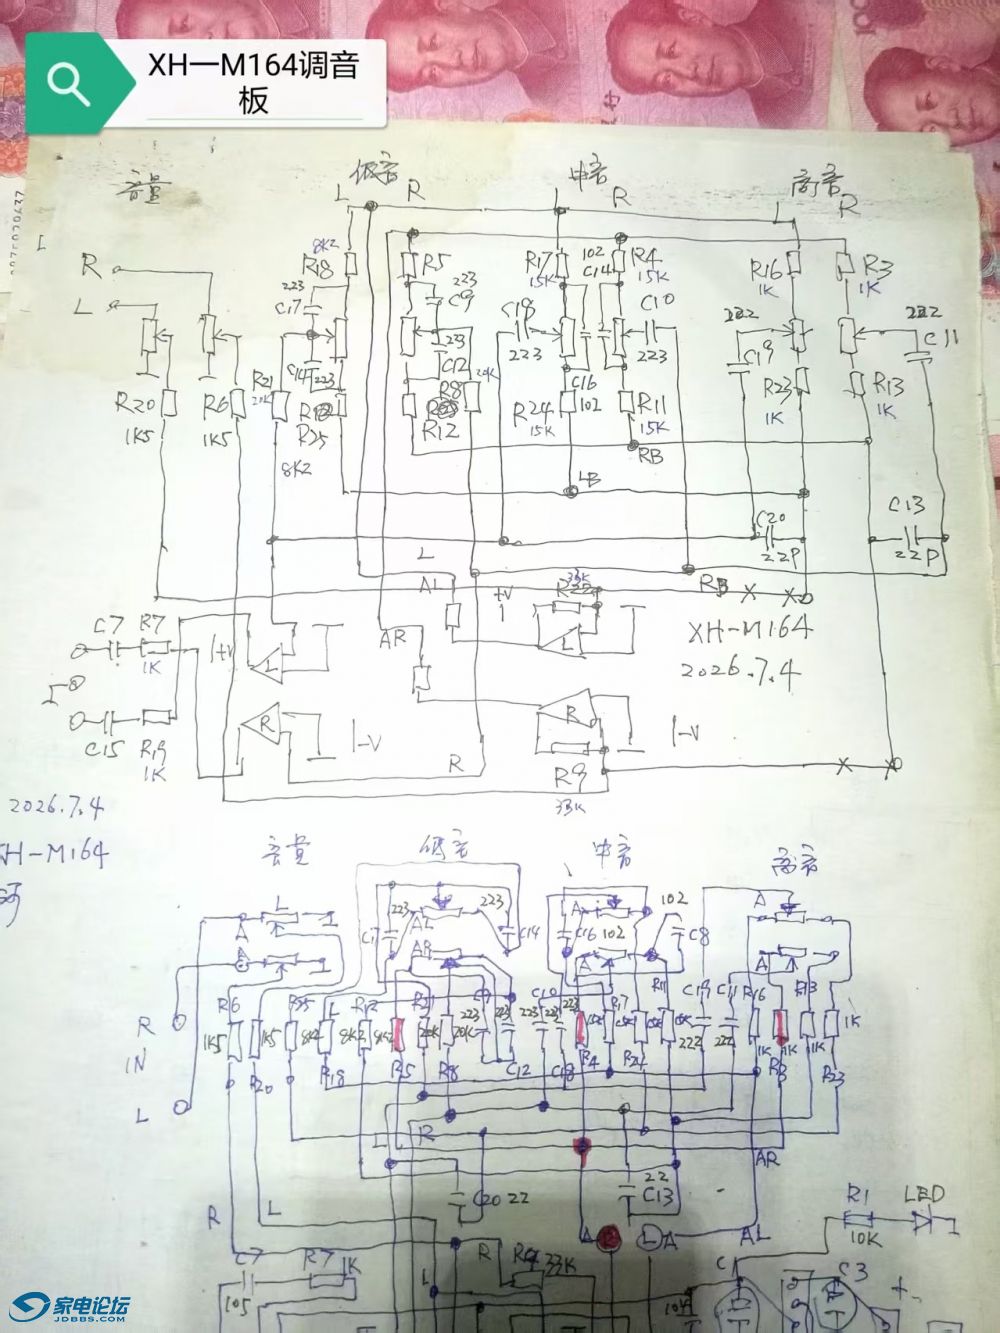 XH一M164调音
板
音量
低音
中音
高音
L R
L R
L R
R
L
8K2
R18
R5
R17
102
R4
R16
R3
15K
C14
15K
1K
1K
223
C17
223
C9
C10
222
222
C18
C11
223
223
C19
223
C12
C14
223
R21
20K
R8
20K
C16
102
R23
R13
R20
R6
R24
R11
1K
1K
1K5
1K5
R35
R12
15K
15K
8K2
RB
LB
C20
22P
C13
22P
L
AL
+V
33K
R22
RB
XH-M164
AR
2026.7.4
C7 R7
1K
+V
L
L
R
R
-V
-V
C15
R19
1K
R
R9
33K
2026.7.4
XH-M164
音量
低音
中音
高音
L
A
A
223
AL
223
C14
AR
A
C16
102
A
102
C8
A
A
R6
R35
R12
C10
R17
R11
C19
C11
R16
R13
R
1K5
1K5
8K2
8K2
8K2
20K
20K
223
223
223
223
222
222
1K
1K
1K
1K
IN
R20
R18
R5
R8
C12
C18
R4
R24
R3
R23
L
R
L
AR
C20 22
22
C13
R
L
A
R
L
A
AL
R1
10K
LED
C7
105
R7
1K
R
R9
33K
L
C1
C3
+
家电论坛
JDBBS.COM